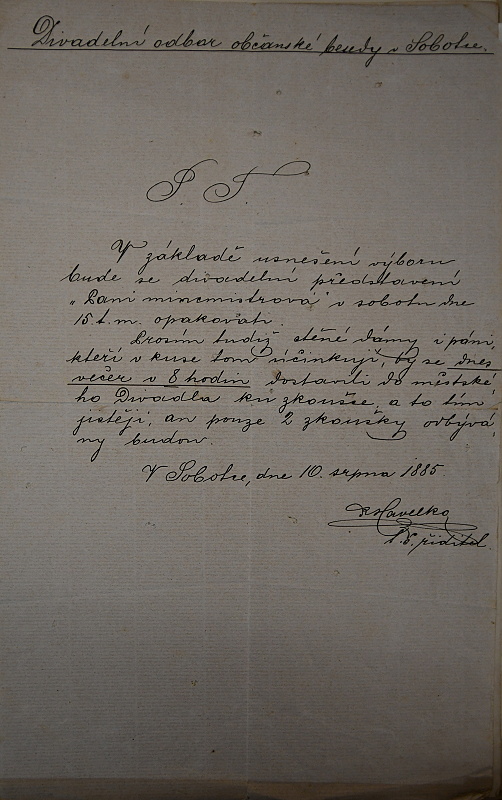 Divadelní odbor občanské besedy v Sobotce.
P. T.
V základě usnešení výboru
bude se divadelní představení
„Paní mincmistrová" v sobotu dne
15. t. m. opakovati.
Prosím tudíž ctěné dámy i pány,
kteří v kuse tom účinkují, by se dnes
večer v 8 hodin dostavili do městské-
ho Divadla ku zkoušce, a to tím
jistěji, an pouze 2 zkoušky odbývá-
ny budou.
V Sobotce, dne 10. srpna 1885.
Havelka
t. č. řiditel.